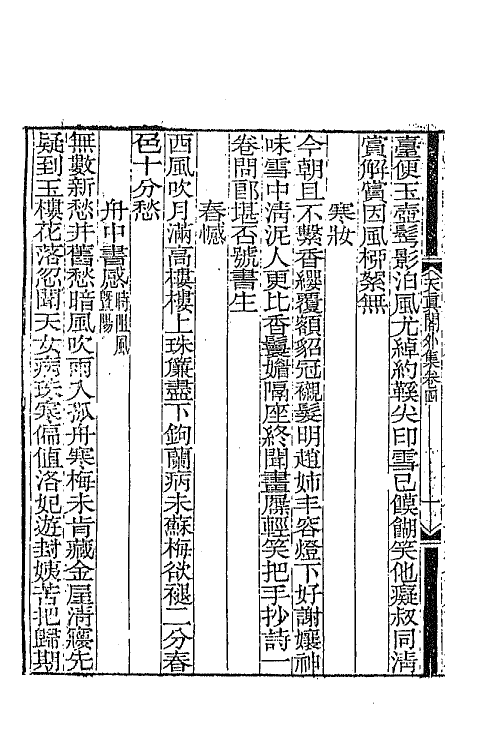 天真閣外集卷四
臺便玉壺髩影泊風尤綽約鞵尖印雪已饃餬笑他癡叔同淸
賞解賞因風柳絮無
寒妝
今朝且不繫香纓覆額貂冠襯髮明趙姉丰容燈下好謝孃神
味雪中淸泥人更比香鬟膽隔座終聞畫屧輕笑把手抄詩一
卷問郎堪否號書生
春憾
西風吹月滿高樓樓上珠簾盡下鉤蘭病未蘇梅欲褪二分春
色十分愁
舟中書感時阻風暨陽
無數新愁幷舊愁暗風吹雨入孤舟寒梅未肯藏金屋淸㾾先
疑到玉樓花落忽聞天女病珠寒偏値洛妃遊封姨苦把歸期